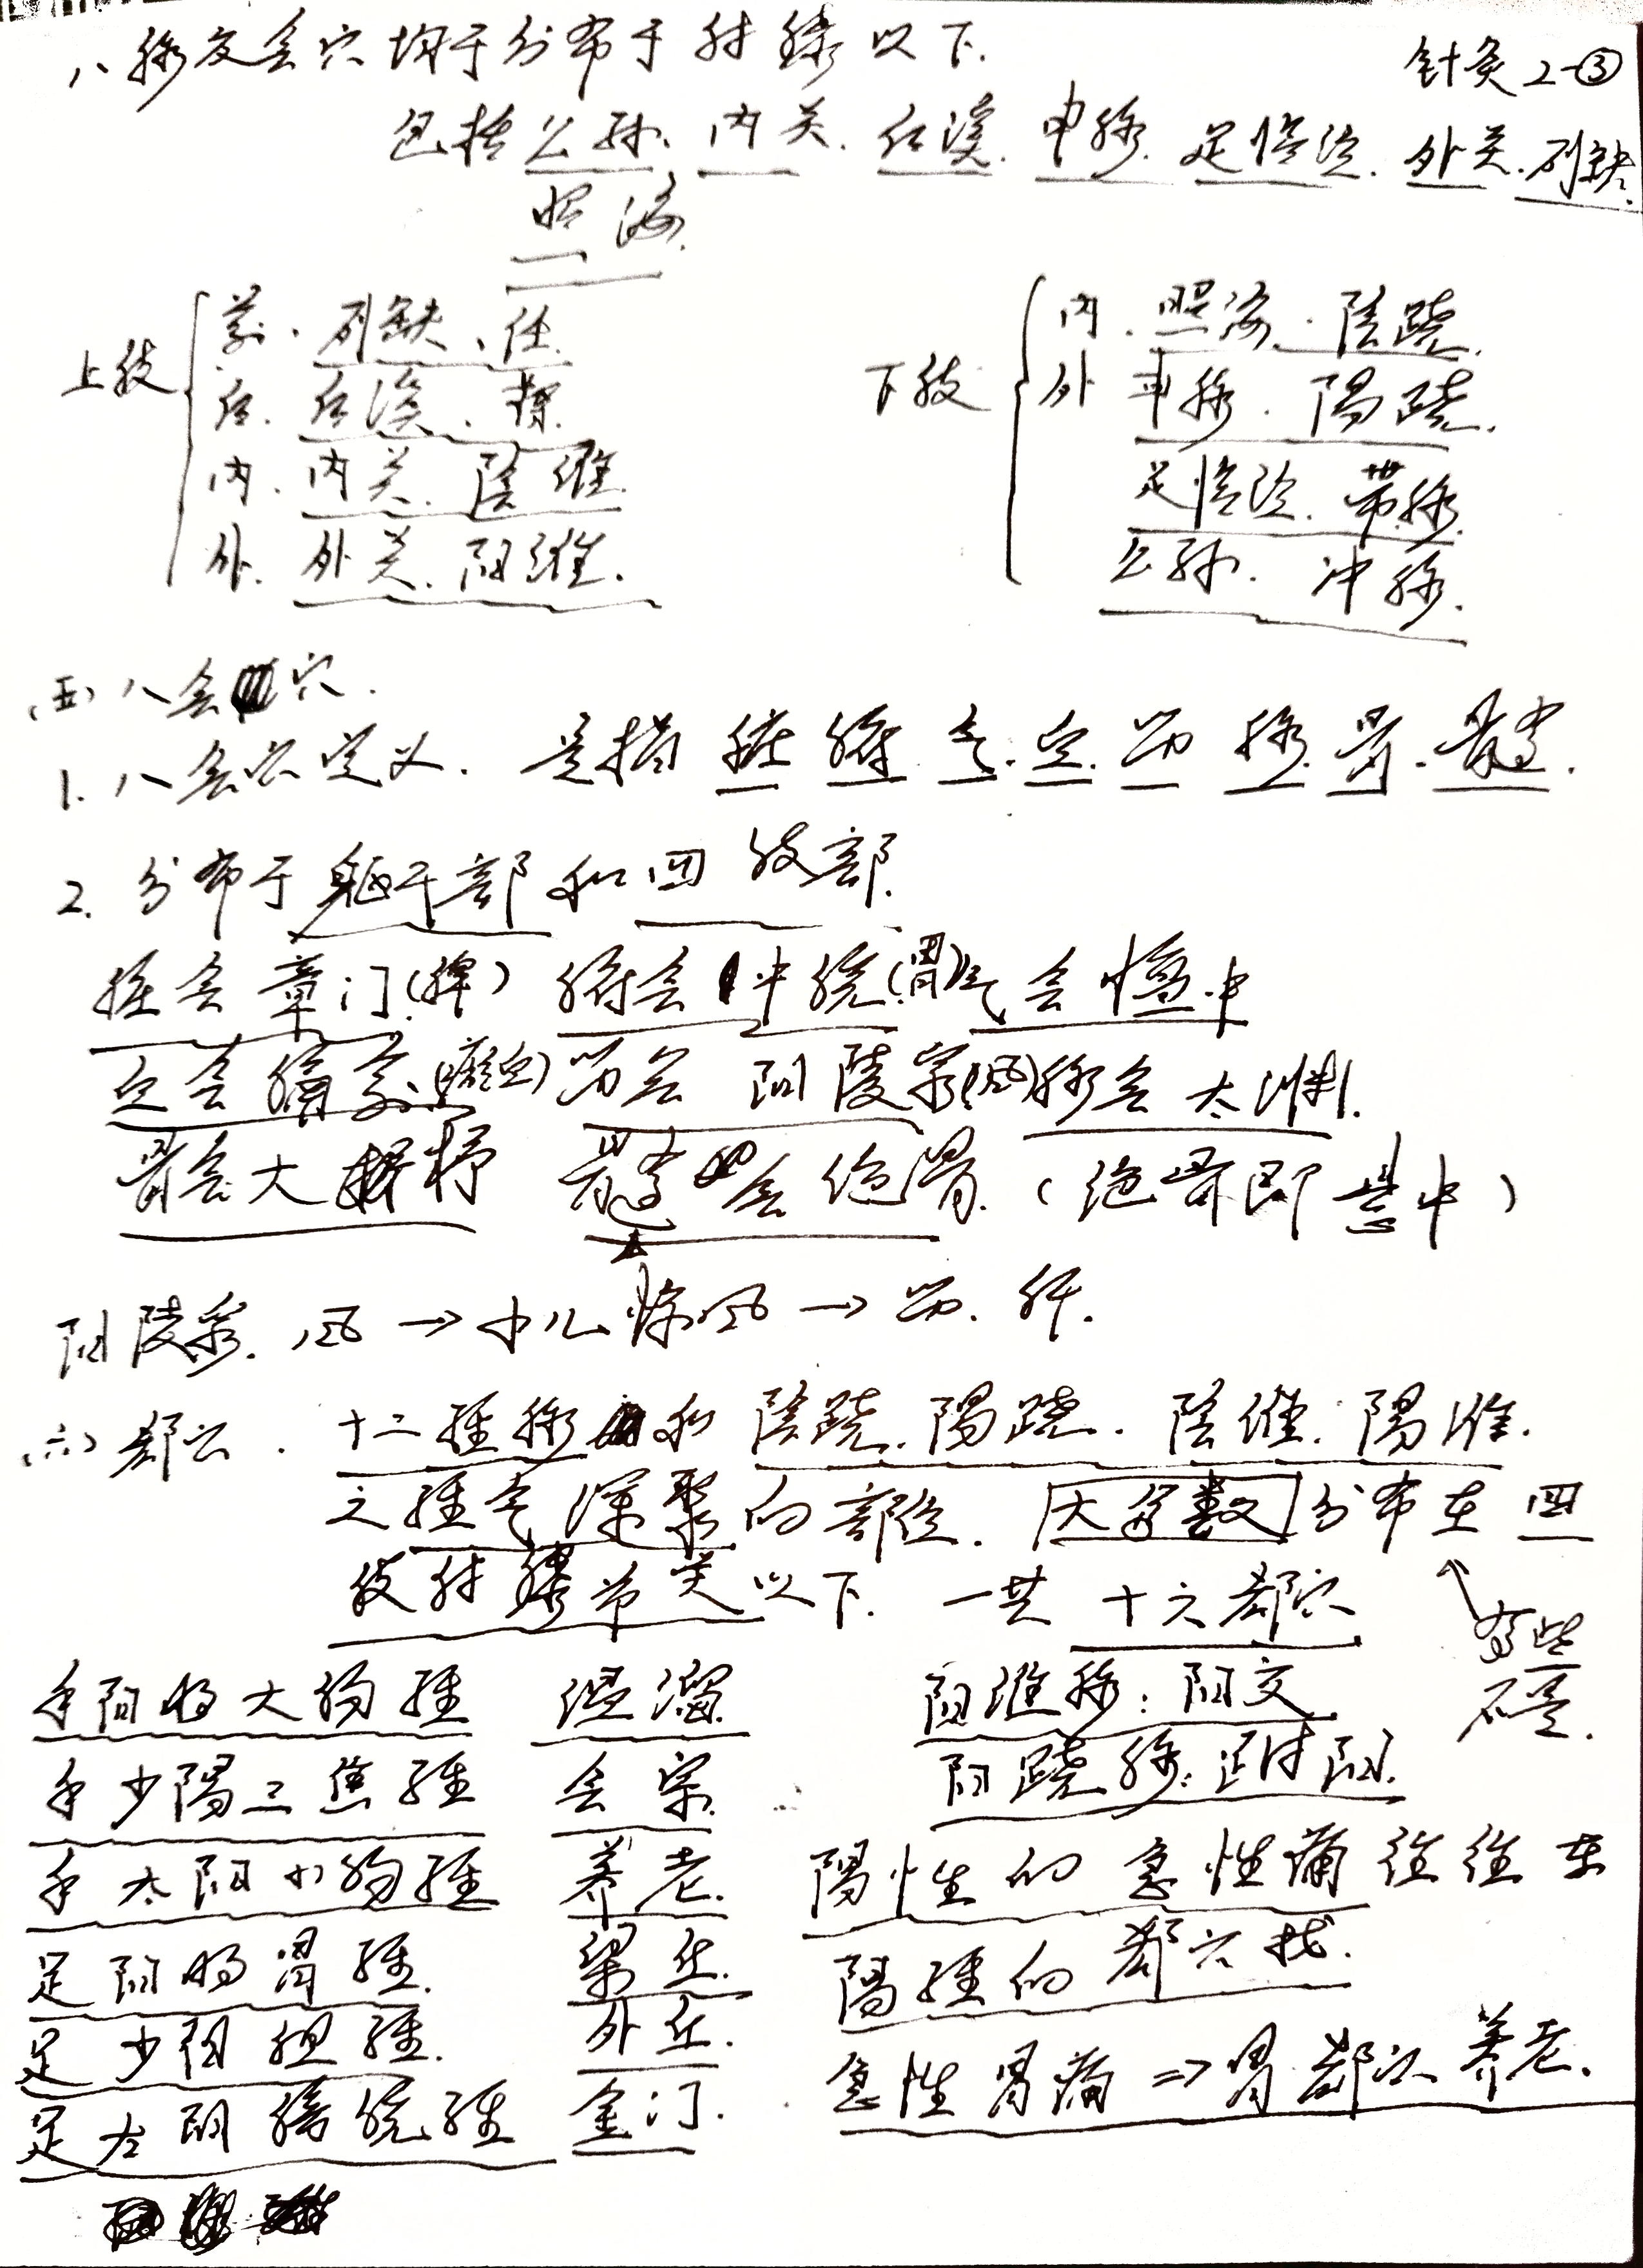 八脉交会穴均于分布于肘膝以下.
针灸2-③
包括公孙、内关.后溪.申脉.足临泣.外关.列缺.
照海.
上肢
前、列缺、任.
后.后溪、督.
内.内关.陰維.
外.外关.阳维.
下肢
内.照海.陰蹺.
外 申脉.陽蹺.
足临泣.带脉.
公孙.冲脉.
(五)八会穴.
1.八会穴定义.是指脏腑气.血.筋脉.骨.髓.
2.分布于躯干部和四肢部.
脏会章门(脾)腑会中脘(胃)气会膻中
血会膈俞(瘀血)筋会 阳陵泉(风)脉会太渊.
骨会大杼 髓会绝骨.(绝骨即悬中)
阳陵泉.风→小儿惊风→筋.肝.
(六)郄穴.十二經脉和陰蹺.陽蹺.陰維.陽维.
之經气深聚的部位.大多数分布在四
肢肘膝节关以下.一共十六郄穴
有些
不是.
手阳明大肠經 温溜.
手少陽三焦經 会宗.
手太阳小肠經 养老.
足阳明胃經.梁丘.
足少阳胆經.外丘.
足太阳膀胱經 金门.
阳维脉:阳交.
阳蹺脉:跗阳.
陽性的急性痛往往在
陽經的郄穴找.
急性胃痛⇒胃郄穴养老.